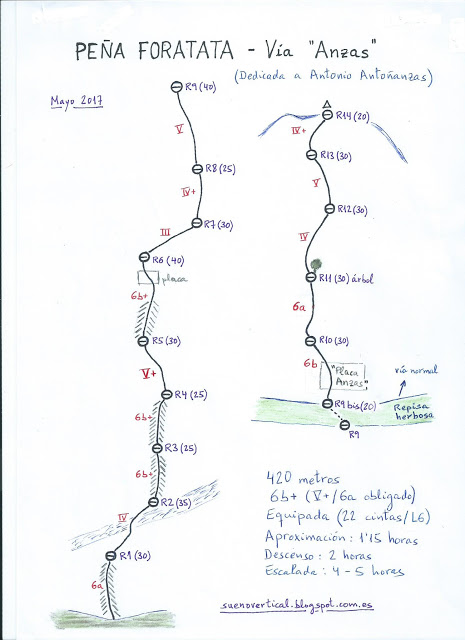 PEÑA FORATATA - Vía "Anzas"
(Dedicada a Antonio Antoñanzas)
Mayo 2017
R9 (40)
V
R8 (25)
IV+
R7 (30)
III
R6 (40)
placa
6b+
R5 (30)
V+
R4 (25)
6b+
R3 (25)
6b+
R2 (35)
IV
R1 (30)
6a
R14 (20)
IV+
R13 (30)
V
R12 (30)
IV
R11 (30) árbol
6a
R10 (30)
6b
"Placa
Anzas"
vía normal
R9 bis (20)
Repisa
herbosa
R9
420 metros
6b+ (V+/6a obligado)
Equipada (22 cintas/L6)
Aproximación: 1'15 horas
Descenso: 2 horas
Escalada: 4 - 5 horas
suenovertical.blogspot.com.es